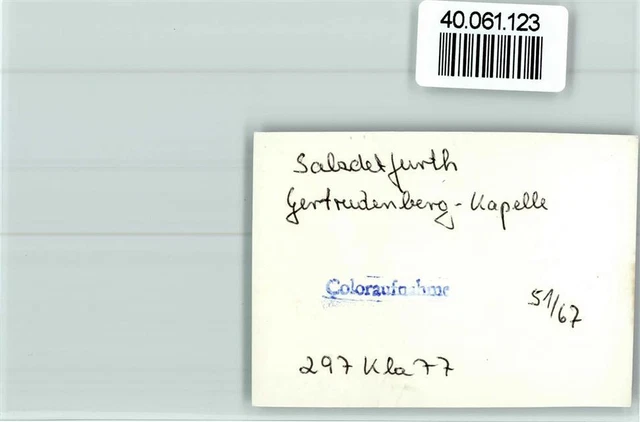 40.061.123
Salzdetfurth
Gertrudenberg-Kapelle
Coloraufnahme
51/67
297 Kla 77